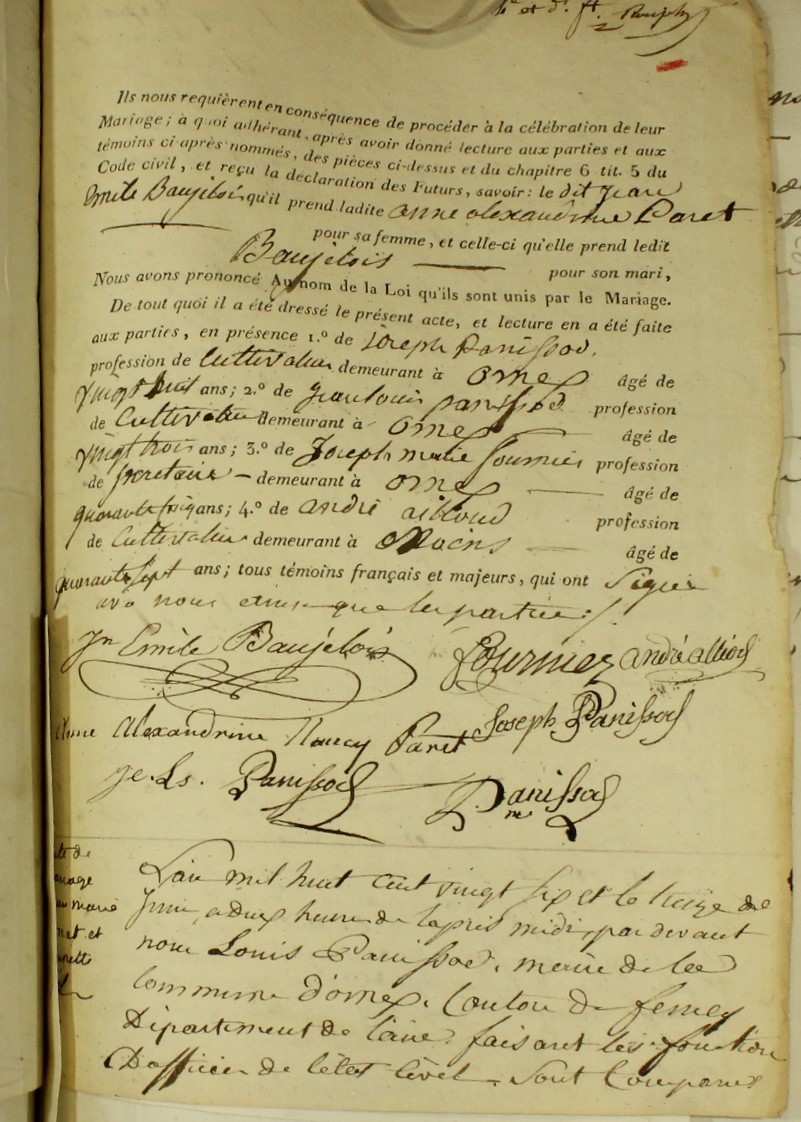 et d. ft.
Ils nous requièrent en conséquence de procéder à la célébration de leur
Mariage; à quoi adhérant, après avoir donné lecture aux parties et aux
témoins ci-après nommés, des pièces ci-dessus et du chapitre 6 tit. 5 du
Code civil, et reçu la déclaration des Futurs, savoir: le dit Jean
Emile Baujelois qu'il prend ladite anne alexandrine Paret
pour sa femme, et celle-ci qu'elle prend ledit
Baujelois pour son mari,
Nous avons prononcé Au nom de la Loi qu'ils sont unis par le Mariage.
De tout quoi il a été dressé le présent acte, et lecture en a été faite
aux parties, en présence 1.º de Joseph Panissod,
profession de Cultivateur demeurant à ornex âgé de
vingt huit ans; 2.º de jean louis panissod profession
de Cultivateur demeurant à ornex âgé de
vingt trois ans; 3.º de Joseph marie fournier profession
de secretaire demeurant à ornex âgé de
quarante ans; 4.º de andré profession
de Cultivateur demeurant à Moëns âgé de
quarante sept ans; tous témoins français et majeurs, qui ont signé
avec nous ainsi que les parties ./.
Jn Emile Baujelois fournier andré alliod
Anne Alexandrine Nancy Paret Joseph Panissod
je. Ls. Panissod Panissod
re
te de
riage
marie
et
L'an mil huit cent vingt six et le treize de
Juin, a deux heures de laprès midi, par devant
nous Louis Panissod, maire de la
Commune d'ornex, Canton de ferney
Département de l'ain, faisant les fonction
D'officier de l'état civil, sont Comparus